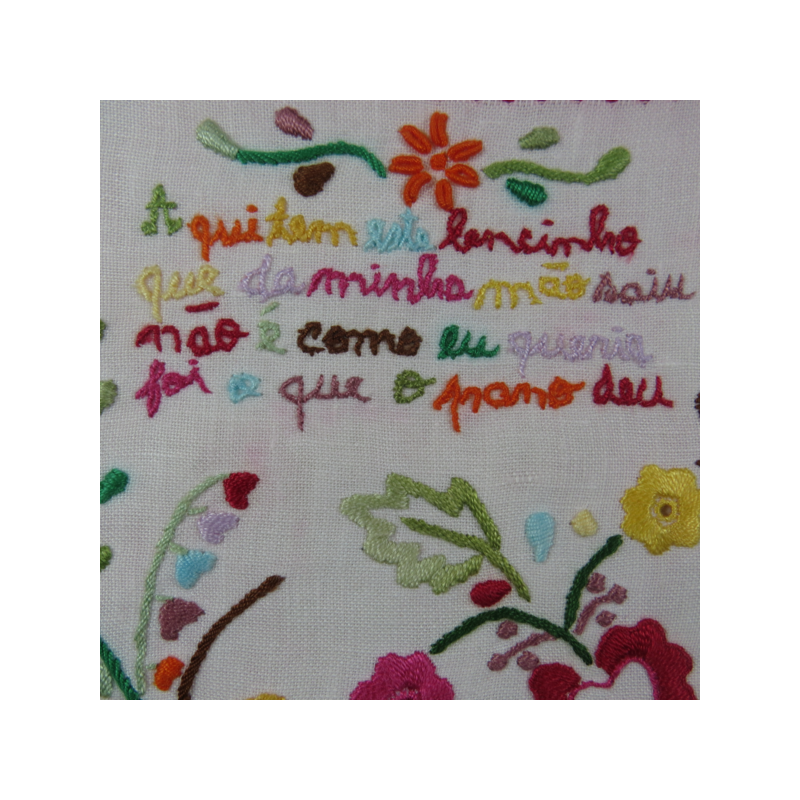 Aqui tem este lencinho
que da minha mão saiu
não é como eu queria
foi o que o pano deu